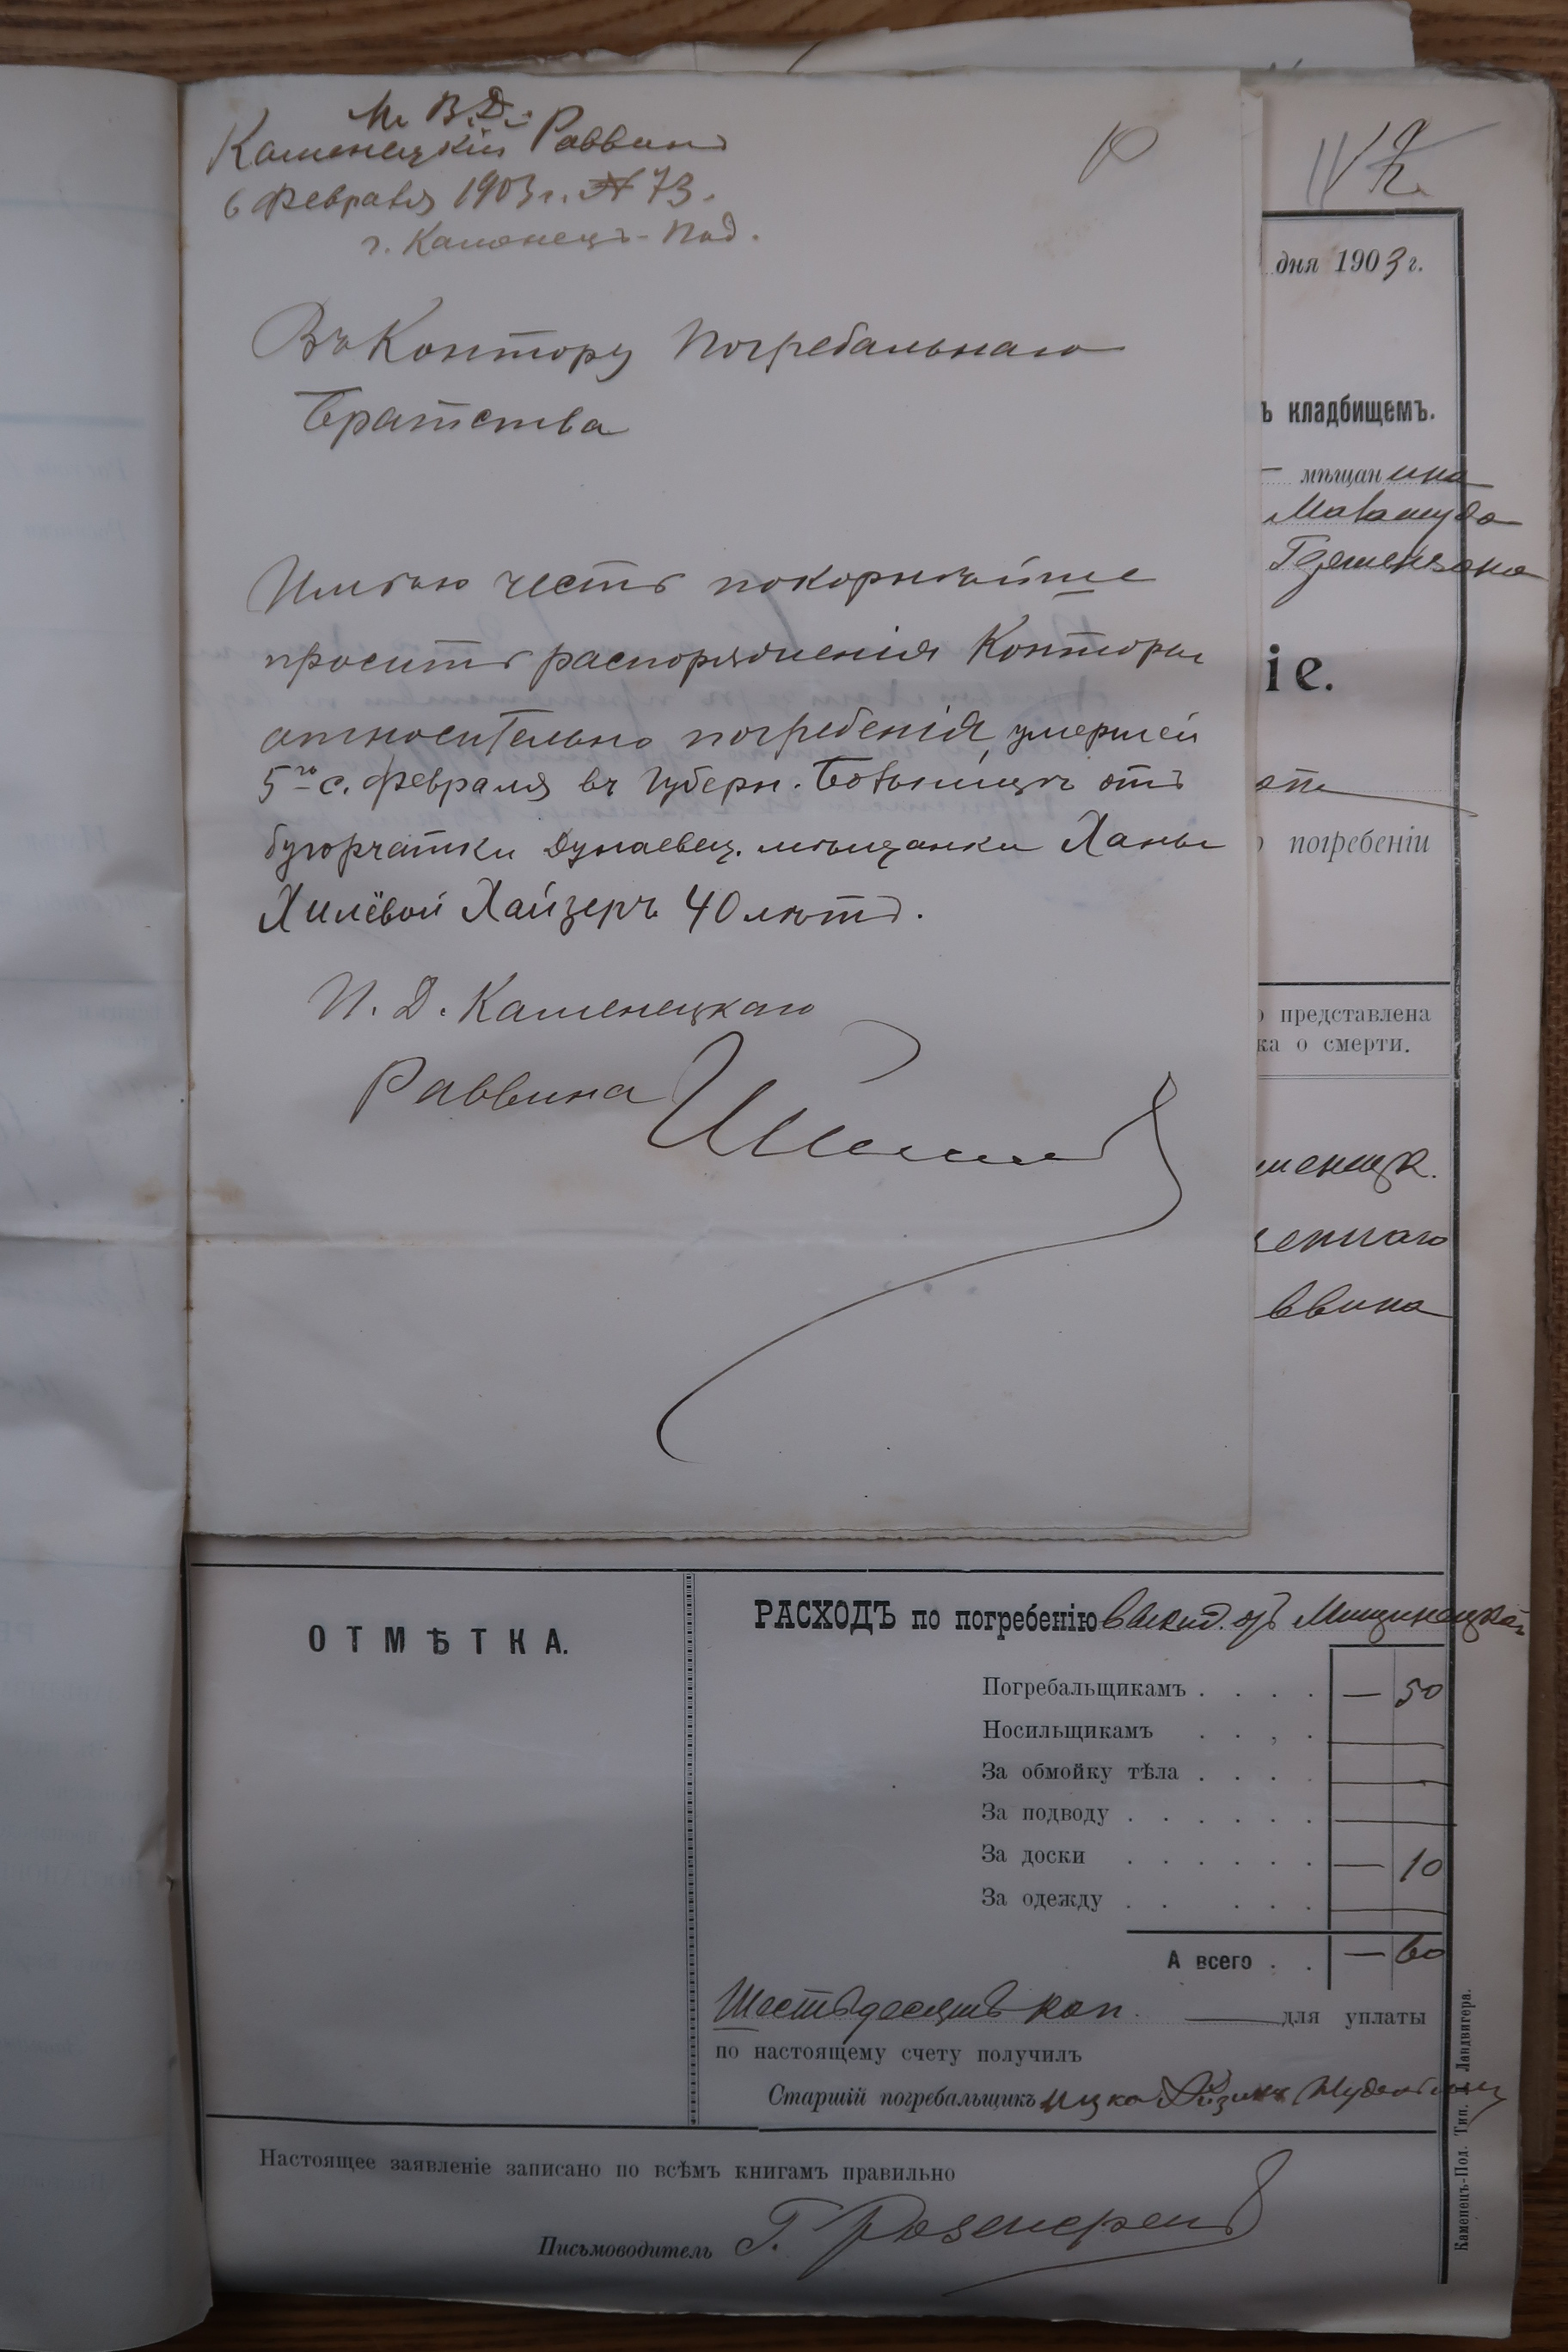 М. В. Д.
Каменецкій Раввинъ
6 Февраля 1903 г. № 73.
г. Каменецъ-Под.
10
Въ Контору Погребальнаго
Братства
Имѣю честь покорнѣйше
просить распоряженія Конторы
относительно погребенія умершей
5го с. Февраля въ Губерн. Больницѣ отъ
бугорчатки Дунаевец. мѣщанки Ханы
Хилёвой Хайзеръ 40 лѣтъ.
И. Д. Каменецкаго
Раввина
дня 1903 г.
ъ кладбищемъ.
мѣщанина
іе.
погребеніи
представлена
ка о смерти.
менецк.
еннаго
ввина
ОТМѢТКА.
РАСХОДЪ по погребенію
Погребальщикамъ . . . . — 50
Носильщикамъ . . , .
За обмойку тѣла . . . .
За подводу . . . . . .
За доски . . . . . . — 10
За одежду . . . . .
А всего . . — 60
Шестьдесятъ коп. для уплаты
по настоящему счету получилъ
Старшій погребальщикъ Ицко
Настоящее заявленіе записано по всѣмъ книгамъ правильно
Письмоводитель Г.
Каменецъ-Под. Тип. Ландвигера.